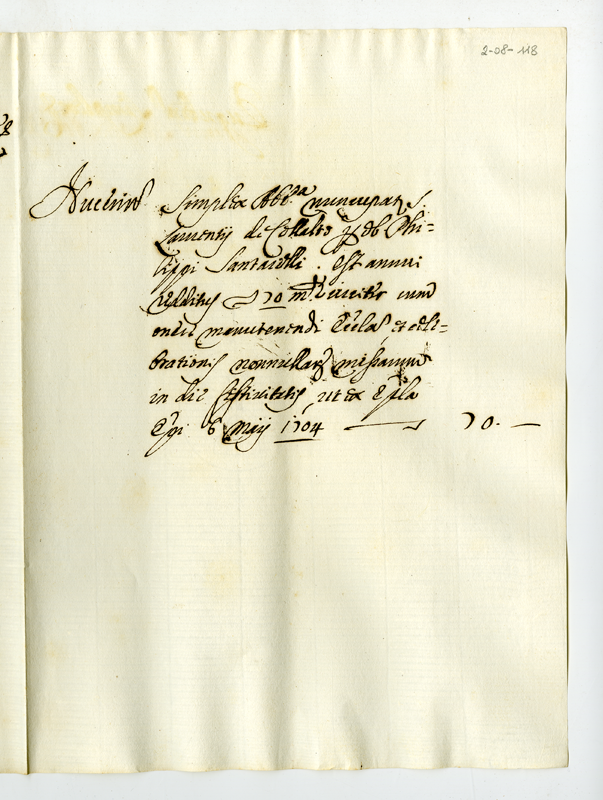 2-08-118
Nucerin. Simplex Abb.a nuncupat. S.
Laurentij de Collalto p. ob. Phi=
lippi Santarelli. est annui
redditus 70 m.tæ circiter cum
onere manutenendi Eccl.as et cele=
brationis nonnullar. missarum
in die festivitatis, ut ex Ep.la
Ep.i 6 Maij 1704 — 70. —